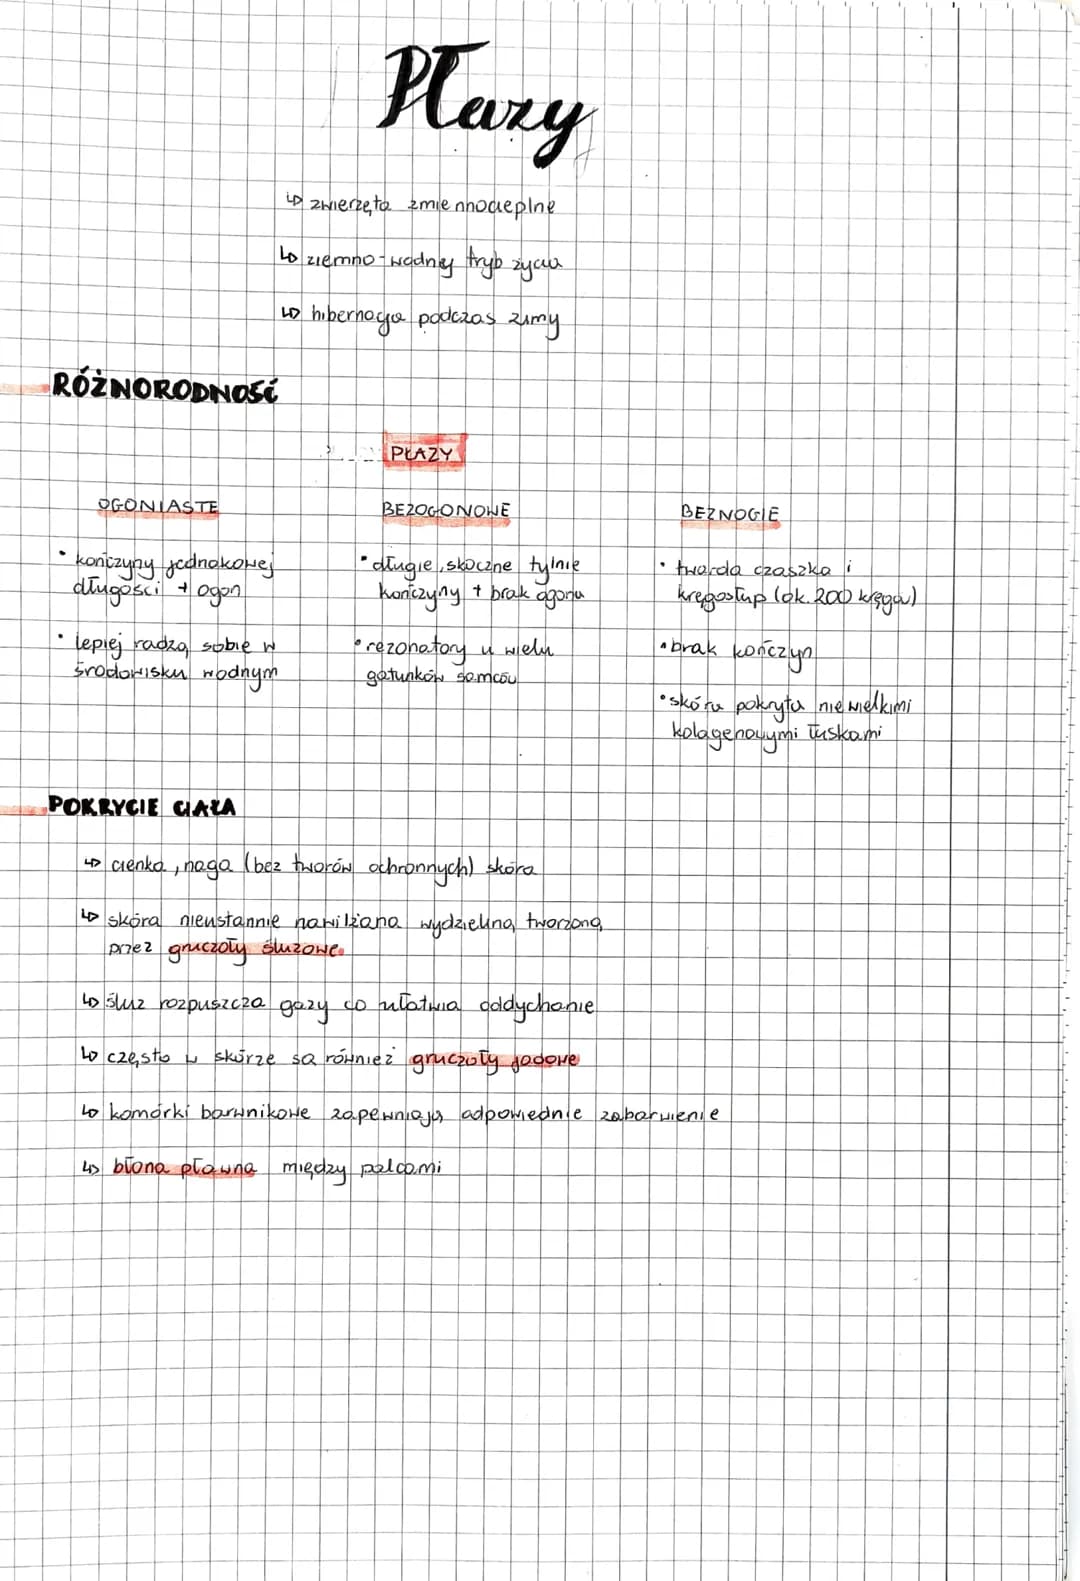 Płazy
↳ zwierzęta zmiennocieplne
↳ ziemno-wodny tryb życia
↳ hibernacja podczas zimy
RÓŻNORODNOŚĆ
PŁAZY
OGONIASTE
• kończyny jednakowej
długości + ogon
• lepiej radzą sobie w
środowisku wodnym
BEZOGONOWE
• długie, skoczne tylnie
kończyny + brak ogonu
• rezonatory u wielu
gatunków samców
BEZNOGIE
• twarda czaszka i
kręgosłup (ok. 200 kręga)
• brak kończyn
• skóra pokryta niewielkimi
kolagenowymi łuskami
POKRYCIE CIAŁA
↳ cienka, naga (bez tworów ochronnych) skóra
↳ skóra nieustannie nawilżana wydzieliną tworzoną
przez gruczoły śluzowe.
↳ śluz rozpuszcza gazy co ułatwia oddychanie
↳ często w skórze są również gruczoły jadowe
↳ komórki barwnikowe zapewniają odpowiednie zabarwienie
↳ błona pławna między palcami